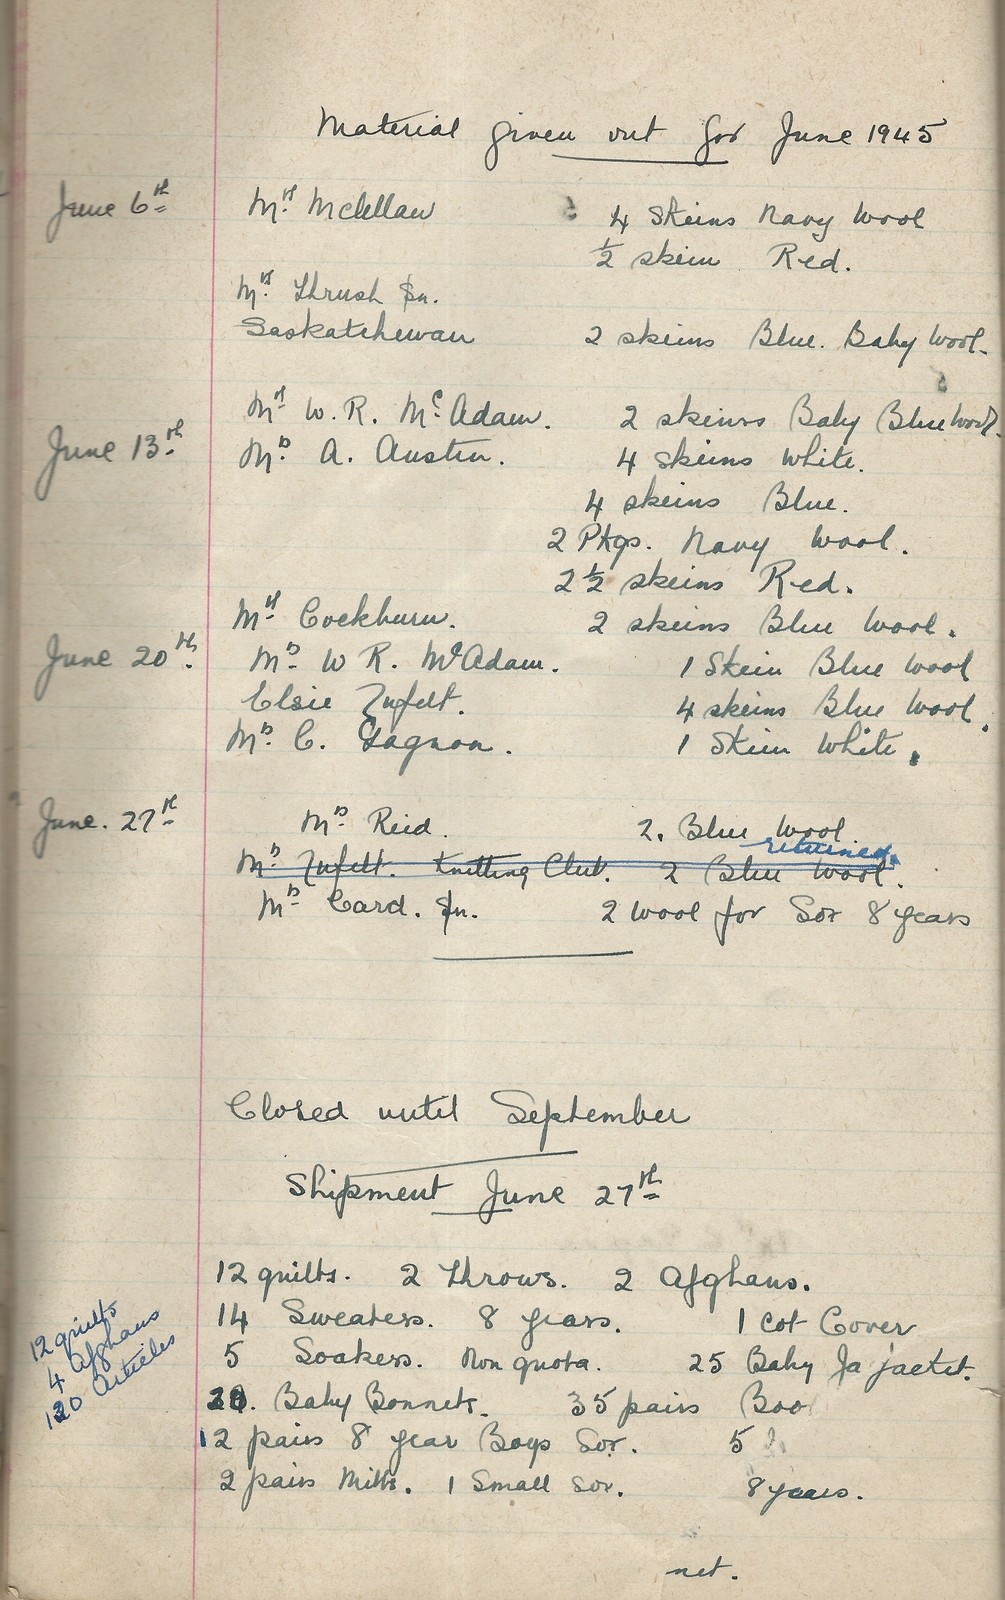 Material given out for June 1945
June 6th Mrs McLellan 4 Skeins Navy Wool
½ skein Red.
Mrs Thrush Sn.
Saskatchewan 2 skeins Blue. Baby Wool.
Mrs W. R. McAdam. 2 skeins Baby Blue Wool.
June 13th Mrs A. Austin. 4 skeins White.
4 skeins Blue.
2 Pkgs. Navy Wool.
2½ skeins Red.
Mrs Cockburn. 2 skeins Blue Wool.
June 20th. Mrs W R. McAdam. 1 Skein Blue Wool
Elsie Zufelt. 4 skeins Blue Wool.
Mrs C. Gagnon. 1 Skein White.
June. 27th Mrs Reid. 2. Blue Wool
returned.
Mrs Zufelt. Knitting Club. 2 Blue Wool.
Mrs Card. Sn. 2 wool for Sox 8 years
Closed until September
Shipment June 27th
12 quilts. 2 Throws. 2 Afghans.
14 Sweaters. 8 years. 1 Cot Cover
5 Soakers. Non quota. 25 Baby Ja jacket.
Baby Bonnets. 35 pairs Boo
12 pairs 8 year Boys Sox. 5
2 pairs Mitts. 1 Small Sox. 8 years.
net.
12 quilts
4 Afghans
120 Articles